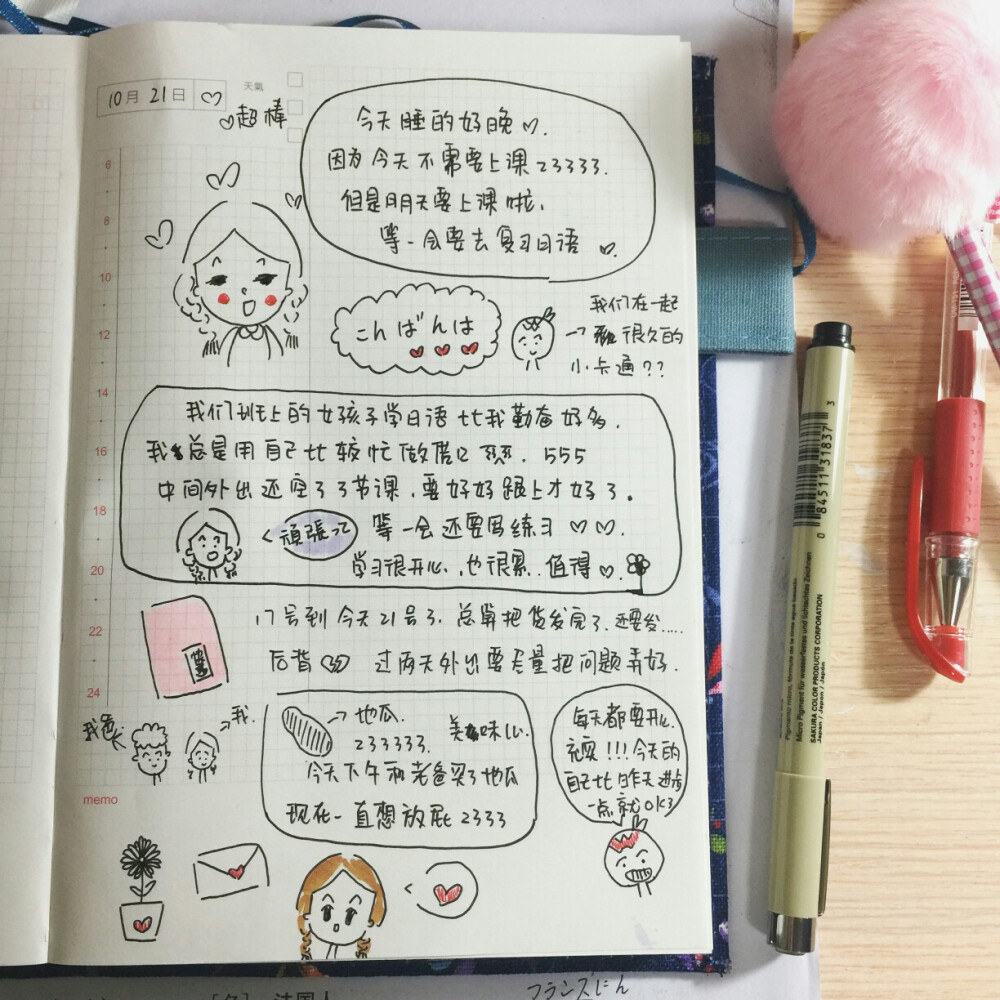 10月21日
天氣
超棒
今天睡的好晚
因为今天不需要上课23333.
但是明天要上课啦、
等一会要去复习日语
こんばんは
我们在一起
→很久的
小卡通??
我们班上的女孩子学日语比我勤奋好多.
我总是用自己比较忙做借口 555
中间外出还空了3节课、要好好跟上才好了。
<頑張って
等一会还要写练习
学习很开心、也很累.值得
17号到今天21号了、总算把货发完了.还要发.....
后背 过两天外出要尽量把问题弄好.
我爸
→我.
→地瓜.
美味
233333.
今天下午和老爸买了地瓜
现在一直想放屁2333
每天都要开心.
充实!!!今天的
自己比昨天进步
一点就OK3
6
8
10
12
14
16
18
20
22
24
memo
3
0 84511 31837
SAKURA COLOR PRODUCTS CORPORATION
Japan / Japon / Japan
www.sakuraofamerica.com
法国人
フランスじん